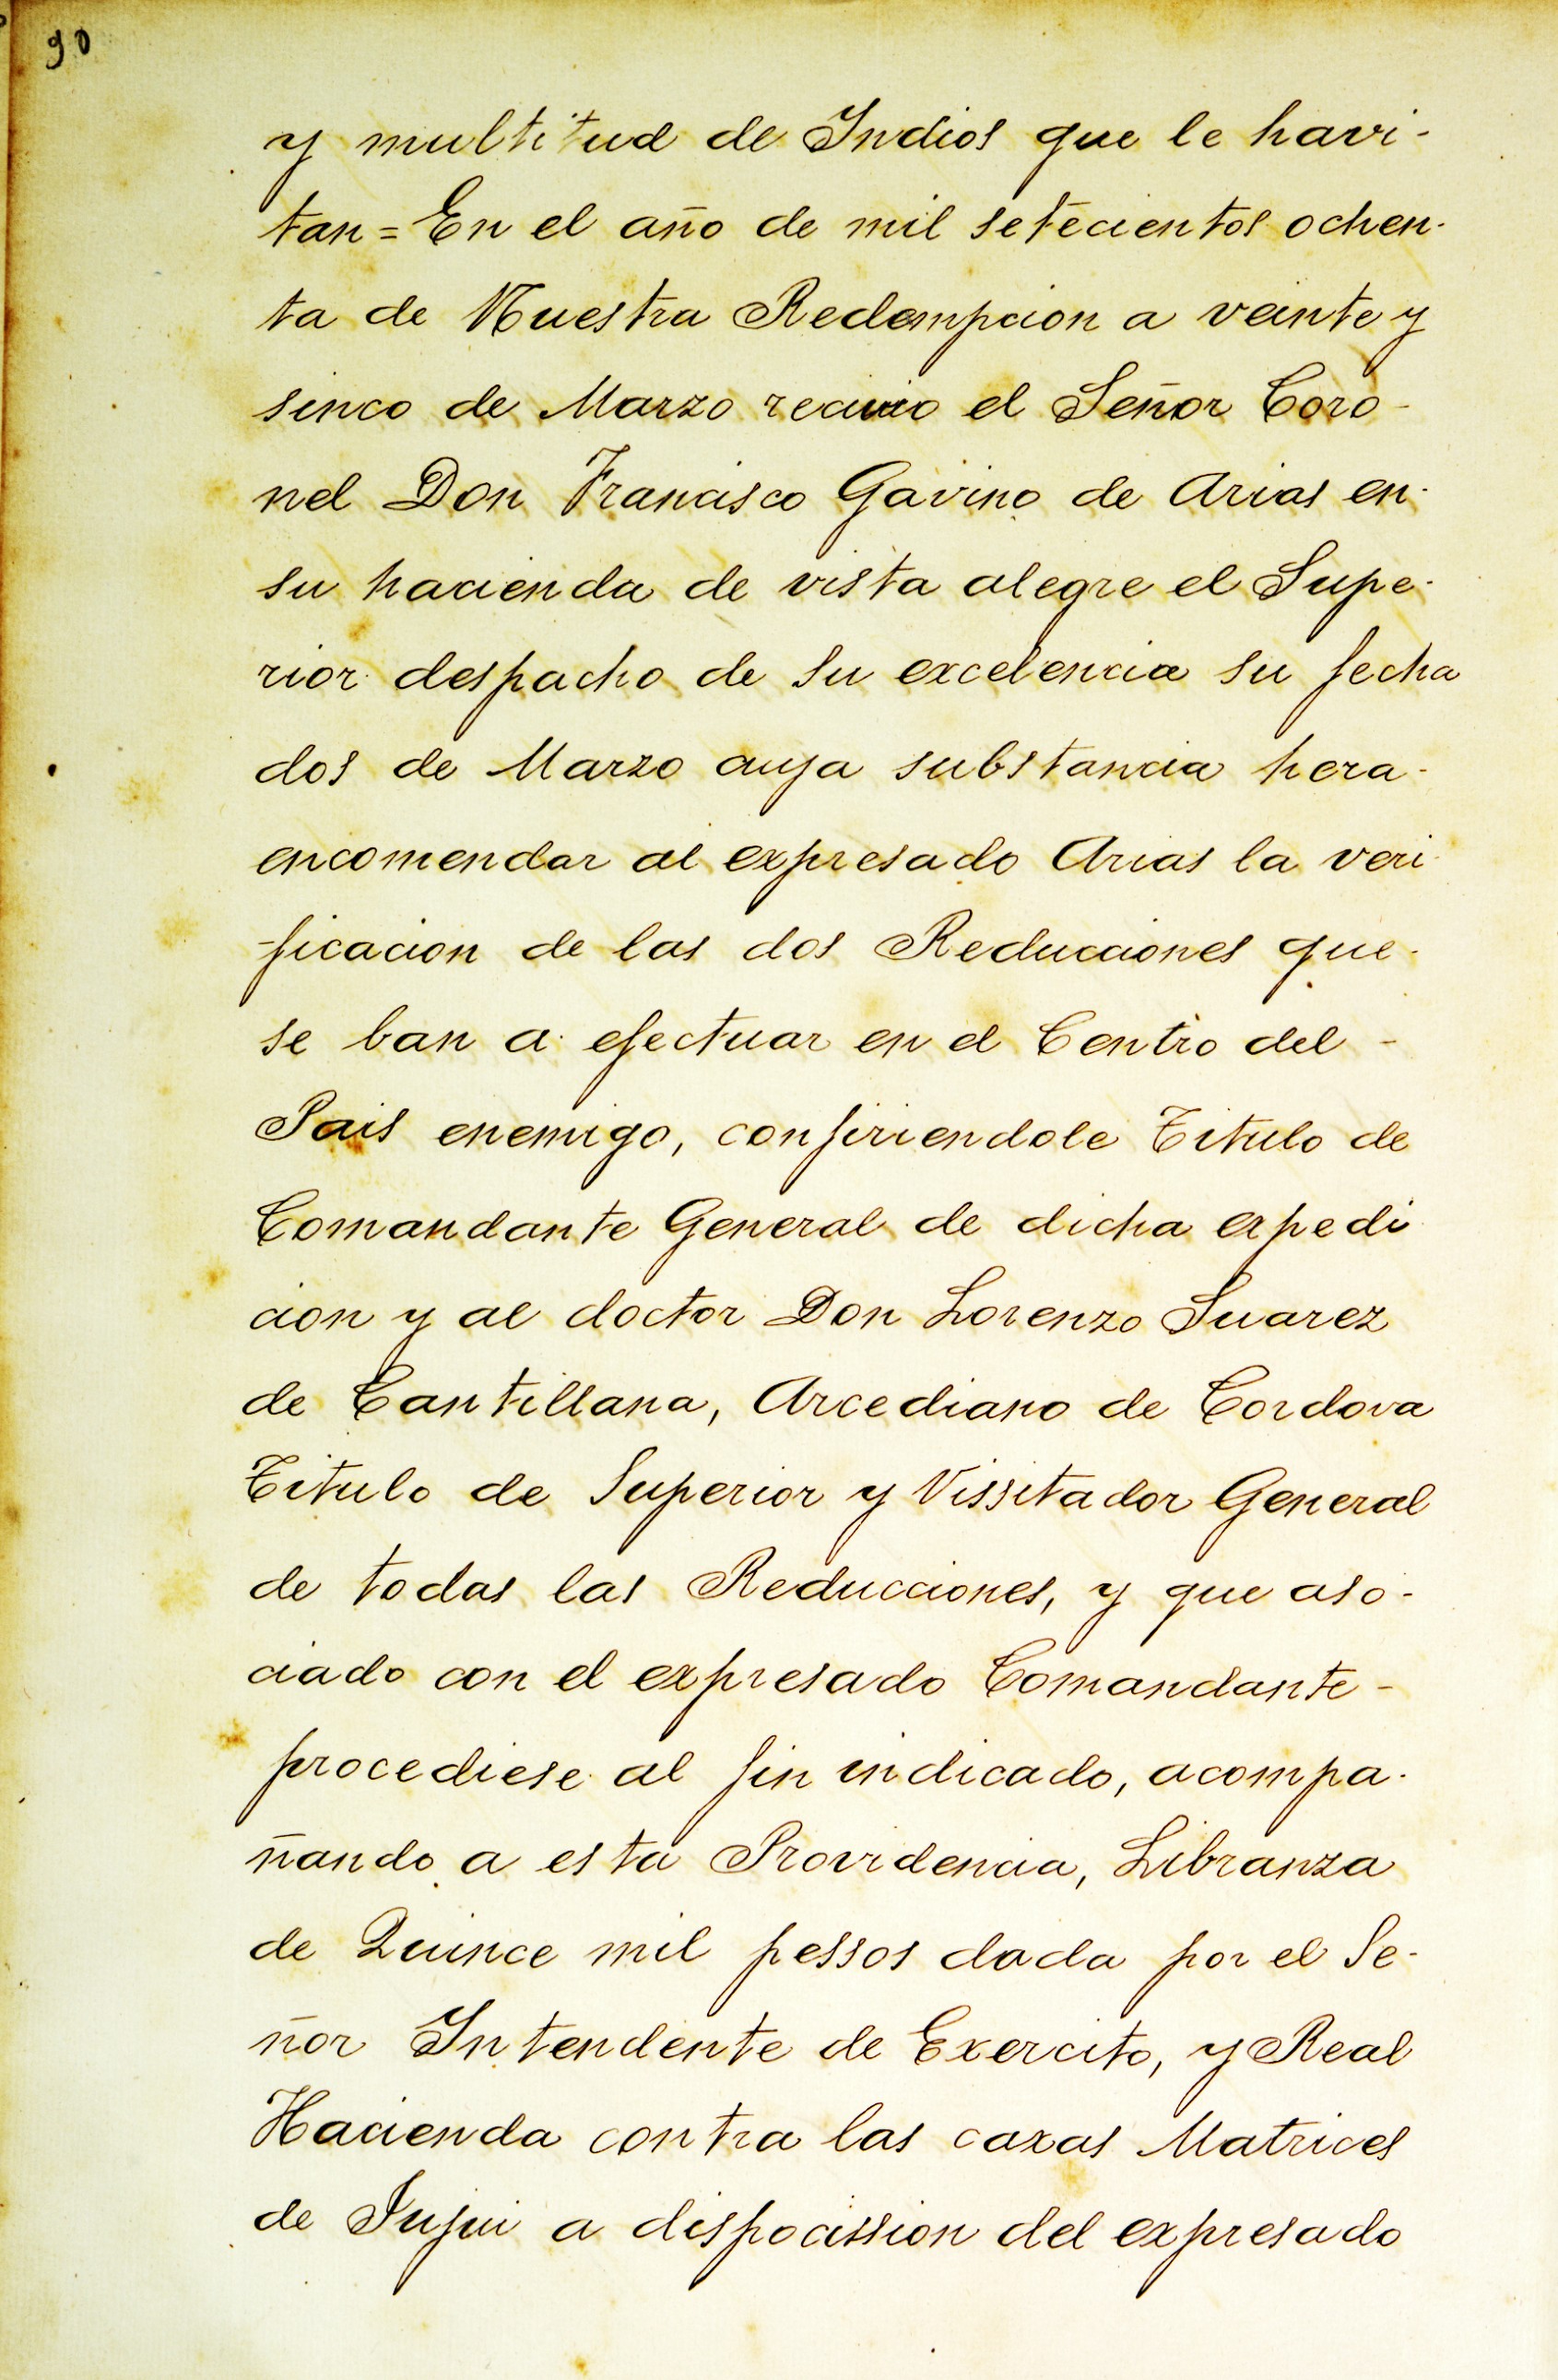 90
y multitud de Indios que le havi-
tan = En el año de mil setecientos ochen-
ta de Nuestra Redempcion a veinte y
sinco de Marzo recivio el Señor Coro-
nel Don Francisco Gavino de Arias en-
su hacienda de vista alegre el Supe-
rior despacho de su excelencia su fecha
dos de Marzo cuya substancia hera-
encomendar al expresado Arias la veri-
ficacion de las dos Reducciones que-
se ban a efectuar en el Centro del -
Pais enemigo, confiriendole Titulo de
Comandante General de dicha expedi
cion y al doctor Don Lorenzo Suarez
de Cantillana, Arcediano de Cordova
Titulo de Superior y Vissitador General
de todas las Reducciones, y que aso-
ciado con el expresado Comandante -
procediese al fin indicado, acompa-
ñando a esta Providencia, Libranza
de Quince mil pessos dada por el Se-
ñor Intendente de Exercito, y Real
Hacienda contra las caxas Matrices
de Jujui a dispocission del expresado